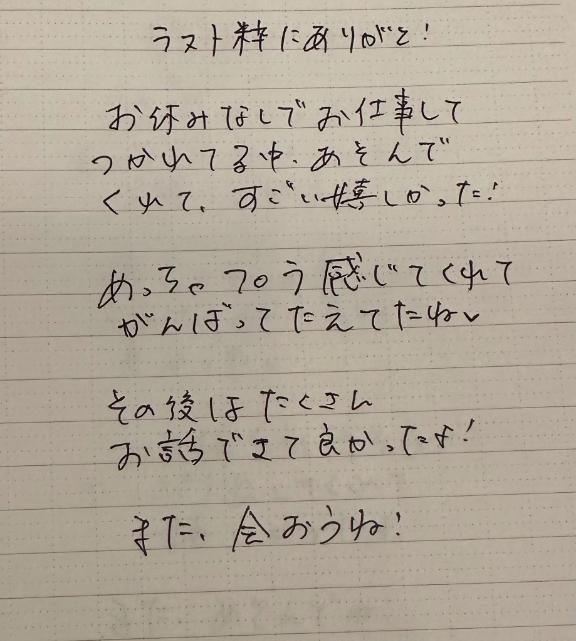 ラスト粋にありがと!
お休みなしでお仕事して
つかれてる中、あそんで
くれて、すごい嬉しかった!
めっちゃフロう感じてくれて
がんばってたえてたね
その後はたくさん
お話できて良かったよ!
また、会おうね!